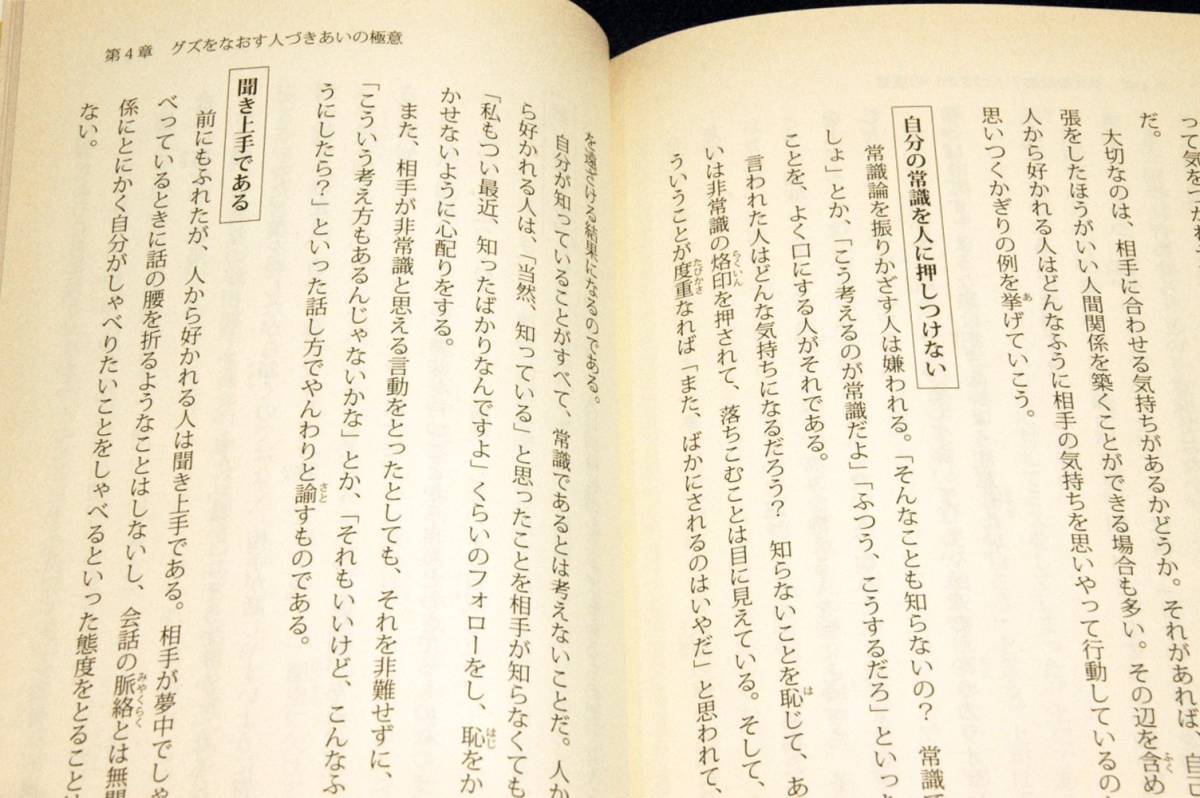 って気を
だ。
大切なのは、相手に合わせる気持ちがあるかどうか。それがあれば、自
張をしたほうがいい人間関係を築くことができる場合も多い。その辺を含め
人から好かれる人はどんなふうに相手の気持ちを思いやって行動しているの
思いつくかぎりの例を挙げていこう。
自分の常識を人に押しつけない
常識論を振りかざす人は嫌われる。「そんなことも知らないの？　常識で
しょ」とか、「こう考えるのが常識だよ」「ふつう、こうするだろ」といっ
ことを、よく口にする人がそれである。
言われた人はどんな気持ちになるだろう？　知らないことを恥じて、あ
いは非常識の烙印を押されて、落ちこむことは目に見えている。そして、
ういうことが度重なれば「また、ばかにされるのはいやだ」と思われて、
第4章　グズをなおす人づきあいの極意
を遠ざける結果になるのである。
自分が知っていることがすべて、常識であるとは考えないことだ。人か
ら好かれる人は、「当然、知っている」と思ったことを相手が知らなくても
「私もつい最近、知ったばかりなんですよ」くらいのフォローをし、恥をか
かせないように心配りをする。
また、相手が非常識と思える言動をとったとしても、それを非難せずに、
「こういう考え方もあるんじゃないかな」とか、「それもいいけど、こんなふ
うにしたら？」といった話し方でやんわりと諭すものである。
聞き上手である
前にもふれたが、人から好かれる人は聞き上手である。相手が夢中でしゃ
べっているときに話の腰を折るようなことはしないし、会話の脈絡とは無関
係にとにかく自分がしゃべりたいことをしゃべるといった態度をとること
ない。